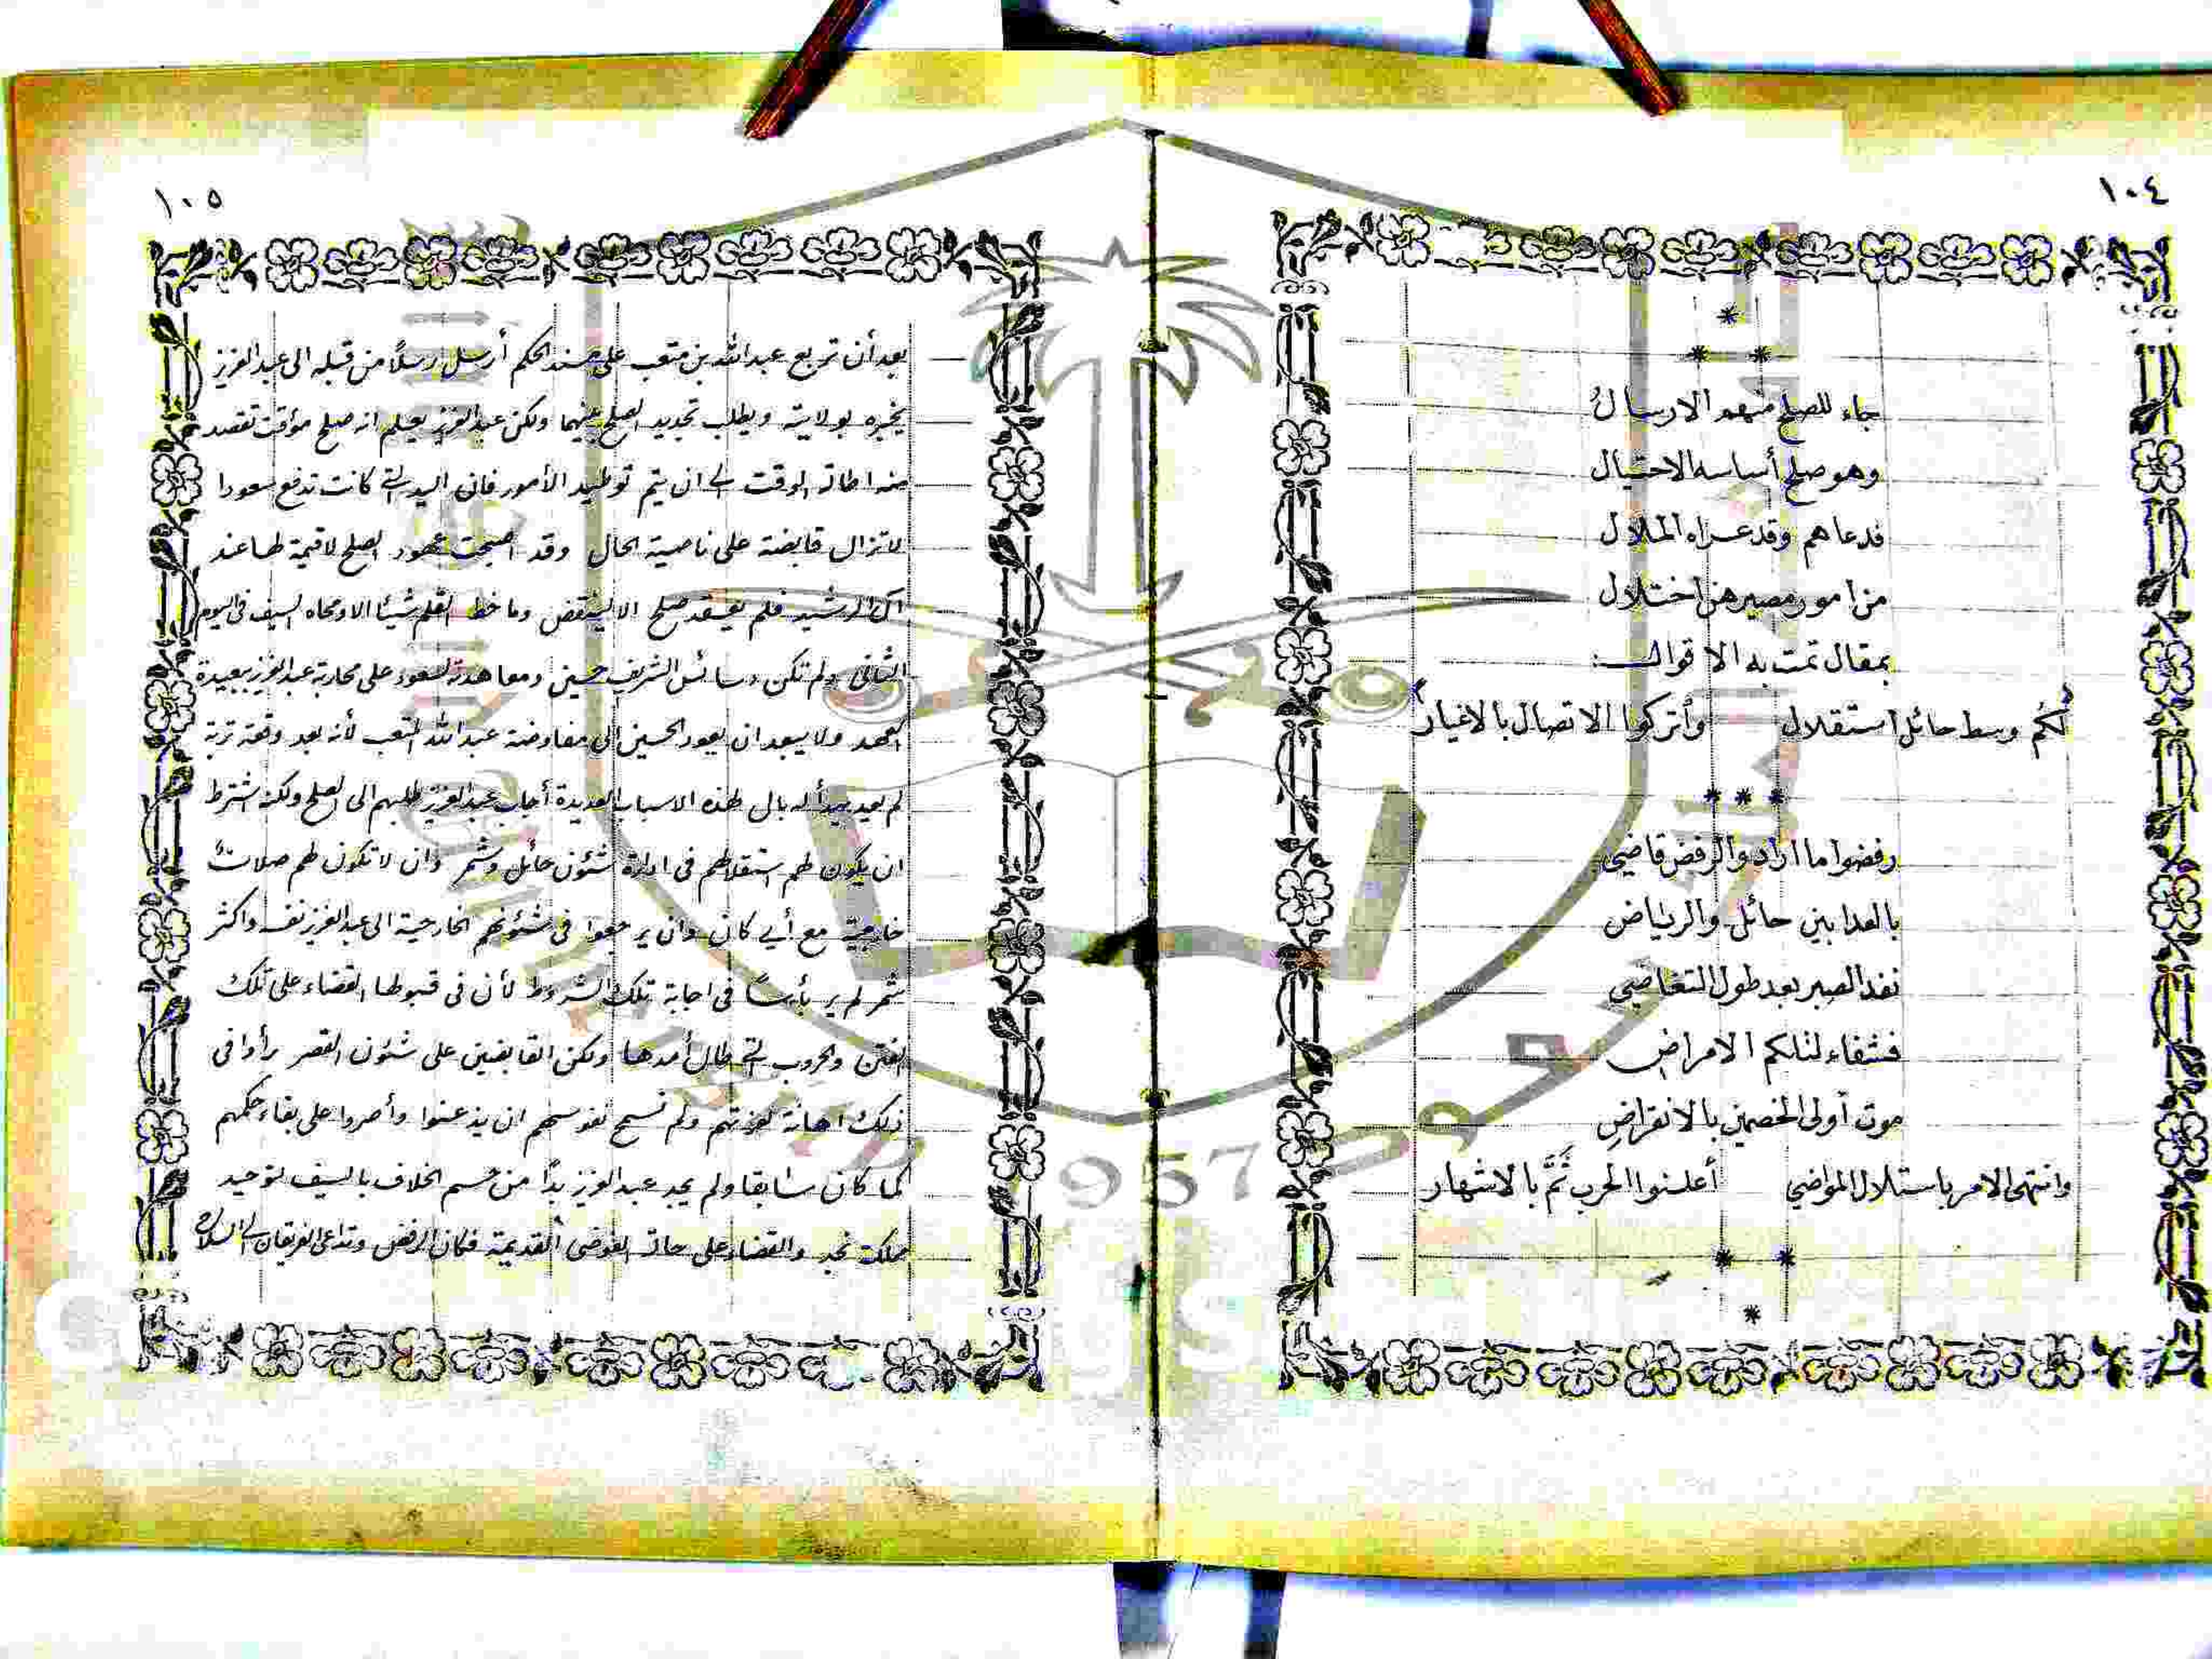 ١٠٤
جاء للصلح منهم الارسالُ
وهو صلح أساسه الاحتيال
فدعاهم وقد عراه الملال
من امور مصيرهن اختلال
بمقال تمت به الاقوال:
لكم وسط حائل استقلال وأتركوا الاتصال بالاغيار
رفضوا ما اراد والرفض قاضي
بالعدا بين حائل والرياض
نفد الصبر بعد طول التغاضي
فشفاء لذلكم الامراض
موت أولى الخصمين بالانقراضِ
وانتهى الامر باستلال المواضي أعلنوا الحرب ثَمَّ بالاشهار
١٠٥
بعد أن تربع عبدالله بن متعب على مسند الحكم أرسل رسلاً من قبله الى عبدالعزيز
يخبره بولايته ويطلب تجديد الصلح بينهما ولكن عبدالعزيز يعلم انه صلح مؤقت تقصد
منه اطالة الوقت الى ان يتم توطيد الأمور فان اليد التي كانت تدفع سعودا
لاتزال قابضة على ناصية الحال وقد اصبحت عهود الصلح لاقيمة لها عند
آل الرشيد فلم يعقد صلح الا لينقض وما خط القلم شيئا الا ومحاه السيف في اليوم
الثاني ولم تكن دسائس الشريف حسين ومعاهدته لسعود على محاربة عبدالعزيز ببعيدة
العهد ولا يبعد ان يعود الحسين الى مفاوضة عبدالله المتعب لأنه بعد وقعة تربة
لم يعد يهدأ له بال لهذه الاسباب العديدة أجاب عبدالعزيز طلبهم الى الصلح ولكنه اشترط
ان يكون لهم استقلالهم في ادارة شئون حائل وشمر وان لا تكون لهم صلاتٌ
خارجية مع أي كان وان يرجعوا في شئونهم الخارجية الى عبدالعزيز نفسه واكثر
شمر لم ير بأساً في اجابة تلك الشروط لأن في قبولها القضاء على تلك
الفتن والحروب التي طال أمدها ولكن القابضين على شئون القصر رأوا في
ذلك اهانة لعزتهم ولم تسمح نفوسهم ان يذعنوا وأصروا على بقاء حكمهم
كما كان سابقا ولم يجد عبدالعزيز بدًّا من حسم الخلاف بالسيف لتوحيد
مملكة نجد والقضاء على حالة الفوضى القديمة فكان الرفض وتداعى الفريقان الى السلاح
1957